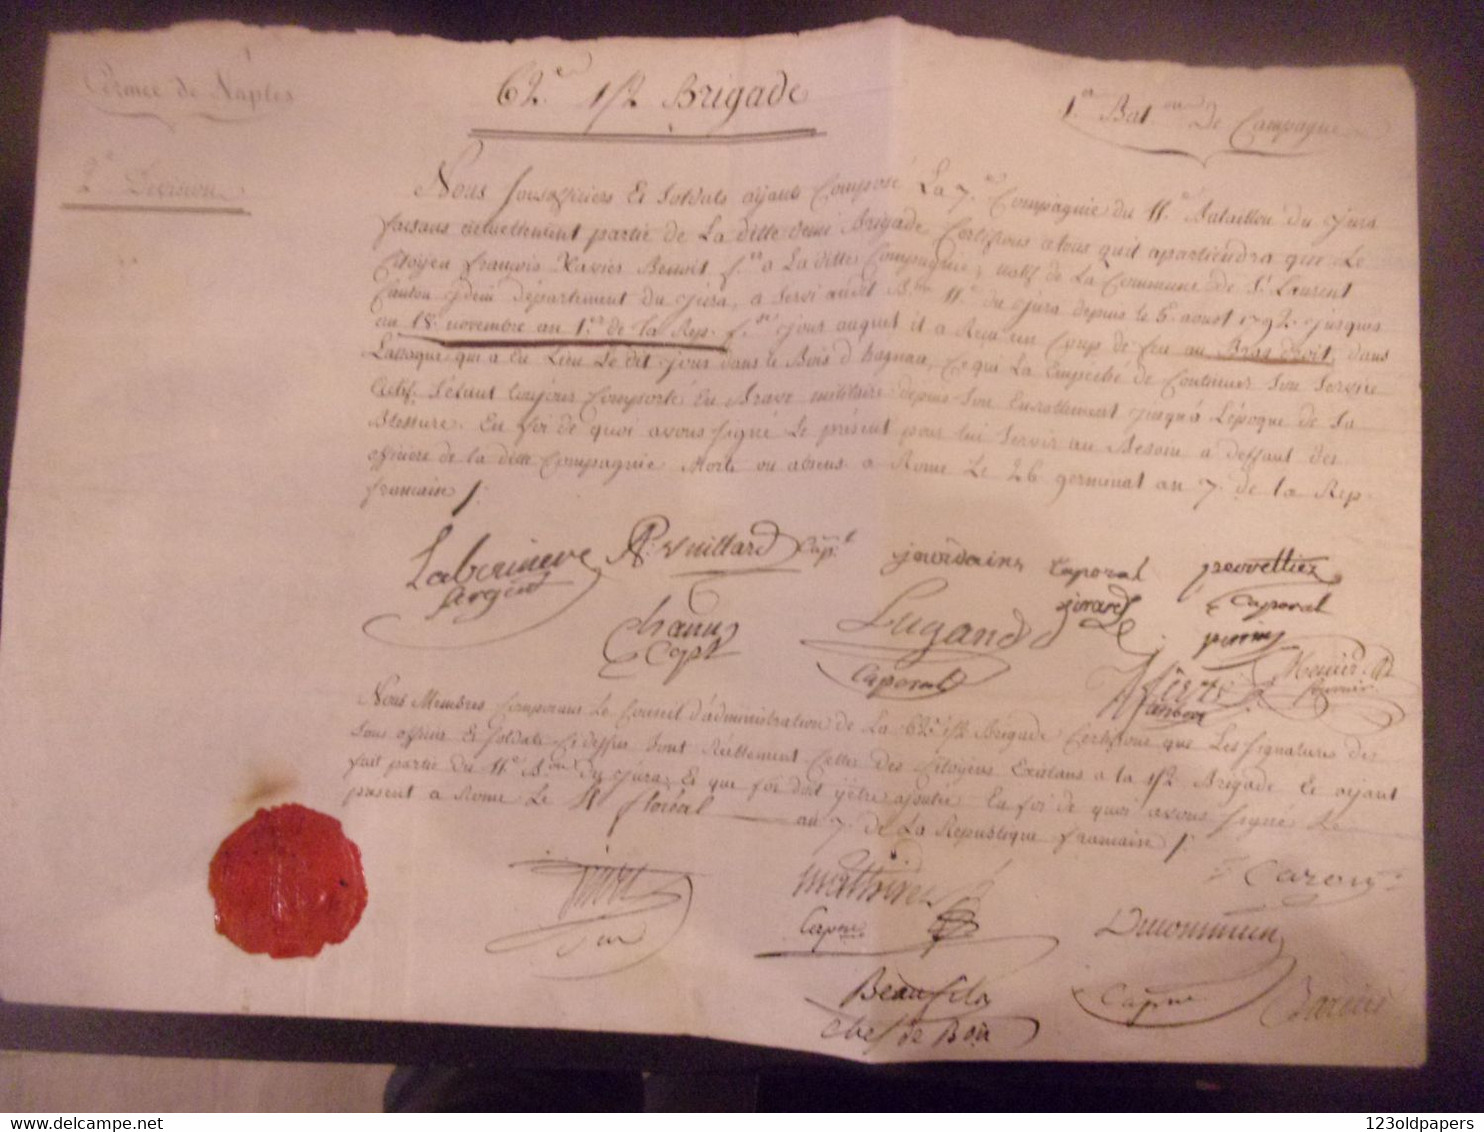 Armée de Naples
62.e 1/2 Brigade
1.er Bat.on De Campagne
2.e Division
Nous Sousofficiers Et Soldats ayants Composé La 7.e Compagnie du 11.e Bataillon du Jura
faisans actuellement partie de La ditte demi Brigade Certifions a tous qu'il apartiendra que Le
Citoyen françois Xavier Benoit f.er a La ditte Compagnie, natif de La Commune de S.t Laurent
Canton idem département du Jura, a servi audit B.on 11.e du Jura depuis le 5. aoust 1792. jusques
au 18. novembre an 1.er de la Rep. f.se jour auquel il a Reçu un Coup de feu au Bras droit, dans
Lattaque qui a Eu Lieu Le dit jour dans le Bois d'hagnau, Ce qui La Empeché de Continuer Son Service
Actif. Setant toujour Comporté En Brave militaire depuis Son Enrollement jusqu'à L'époque de Sa
Blessure. En foi de quoi avons signé Le présent pour lui Servir au Besoin a deffaut des
officiers de la ditte Compagnie Morts ou absens a Rome Le 26 germinal an 7. de la Rep.
francaise /.
Vuillard Cap.l jourdains Caporal
Sergent Caporal
Capt Lugand girard
Caporal
Tambour fourrier
Nous Membres Composans Le Conseil d'administration de La 62.e 1/2 Brigade Certifions que Les Signatures des
Sous officiers Et Soldats Ci dessus Sont Réellement Celles des Citoyens Existans a la 1/2 Brigade Et ayant
fait partie du 11.e B.on du Jura, Et que foi doit y être ajoutée En foi de quoi avons signé Le
présent a Rome Le 11 floréal an 7. de La République francaise /.
Caron
Capne
Beaufils Capne
Chef de Bon
123oldpapers
delcampe.net